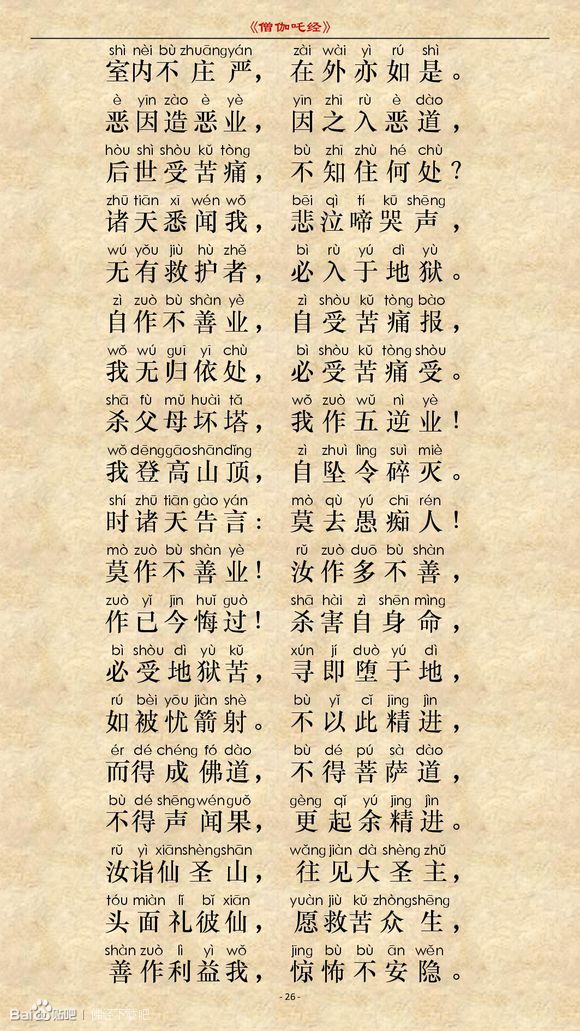 《僧伽吒经》
shì nèi bù zhuāng yán zài wài yì rú shì
室内不庄严，在外亦如是。
è yīn zào è yè yīn zhī rù è dào
恶因造恶业，因之入恶道，
hòu shì shòu kǔ tòng bù zhī zhù hé chù
后世受苦痛，不知住何处？
zhū tiān xī wén wǒ bēi qì tí kū shēng
诸天悉闻我，悲泣啼哭声，
wú yǒu jiù hù zhě bì rù yú dì yù
无有救护者，必入于地狱。
zì zuò bù shàn yè zì shòu kǔ tòng bào
自作不善业，自受苦痛报，
wǒ wú guī yī chù bì shòu kǔ tòng shòu
我无归依处，必受苦痛受。
shā fù mǔ huài tǎ wǒ zuò wǔ nì yè
杀父母坏塔，我作五逆业！
wǒ dēng gāo shān dǐng zì zhuì lìng suì miè
我登高山顶，自坠令碎灭。
shí zhū tiān gào yán mò qù yú chī rén
时诸天告言：莫去愚痴人！
mò zuò bù shàn yè rǔ zuò duō bù shàn
莫作不善业！汝作多不善，
zuò yǐ jīn huǐ guò shā hài zì shēn mìng
作已今悔过！杀害自身命，
bì shòu dì yù kǔ xún jí duò yú dì
必受地狱苦，寻即堕于地，
rú bèi yōu jiàn shè bù yǐ cǐ jīng jìn
如被忧箭射。不以此精进，
ér dé chéng fó dào bù dé pú sà dào
而得成佛道，不得菩萨道，
bù dé shēng wén guǒ gèng qǐ yú jīng jìn
不得声闻果，更起余精进。
rǔ yì xiān shèng shān wǎng jiàn dà shèng zhǔ
汝诣仙圣山，往见大圣主，
tóu miàn lǐ bǐ xiān yuàn jiù kǔ zhòng shēng
头面礼彼仙，愿救苦众生，
shàn zuò lì yì wǒ jīng bù bù ān wěn
善作利益我，惊怖不安隐。
- 26 -
Bai贴吧 | 佛经下载吧